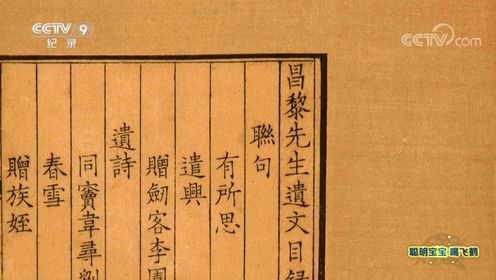 CCTV 9
纪录
CCTV.com
昌黎先生遺文目録
聯句
有所思
遣興
贈劒客李園
遺詩
同竇韋尋劉
春雪
贈族姪
聪明宝宝 喝飞鹤